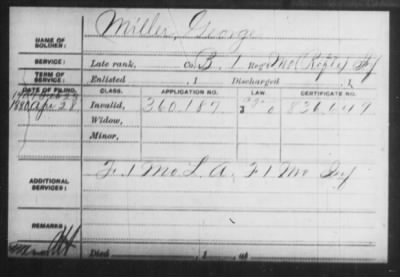 NAME OF SOLDIER: Miller, George
SERVICE: Late rank, Co. B, 1 Reg't Mo (Rifles) Inf
TERM OF SERVICE: Enlisted , 1 Discharged , 1
DATE OF FILING. CLASS. APPLICATION NO. LAW. CERTIFICATE NO.
1880 Apr 28 Invalid, 360187 836049
Widow,
Minor,
ADDITIONAL SERVICES: F. 1 Mo L. A. F 1 Mo Inf
REMARKS:
Died , 1 , at